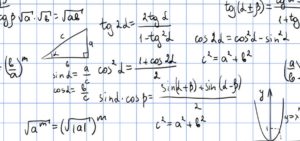 √a · √b = √ab
tg2α = 2tgα / 1-tg²α
tg(α±β) =
cos2α = cos²α - sin²α
c² = a² + b²
c
a
b
(b/a)^m
sinα = a/c
cosα = b/c
cos²α = 1 + cos2α / 2
sinα · cosβ = sin(α+β) + sin(α-β) / 2
c² = a² + b²
√a^m = (√|a|)^m
y